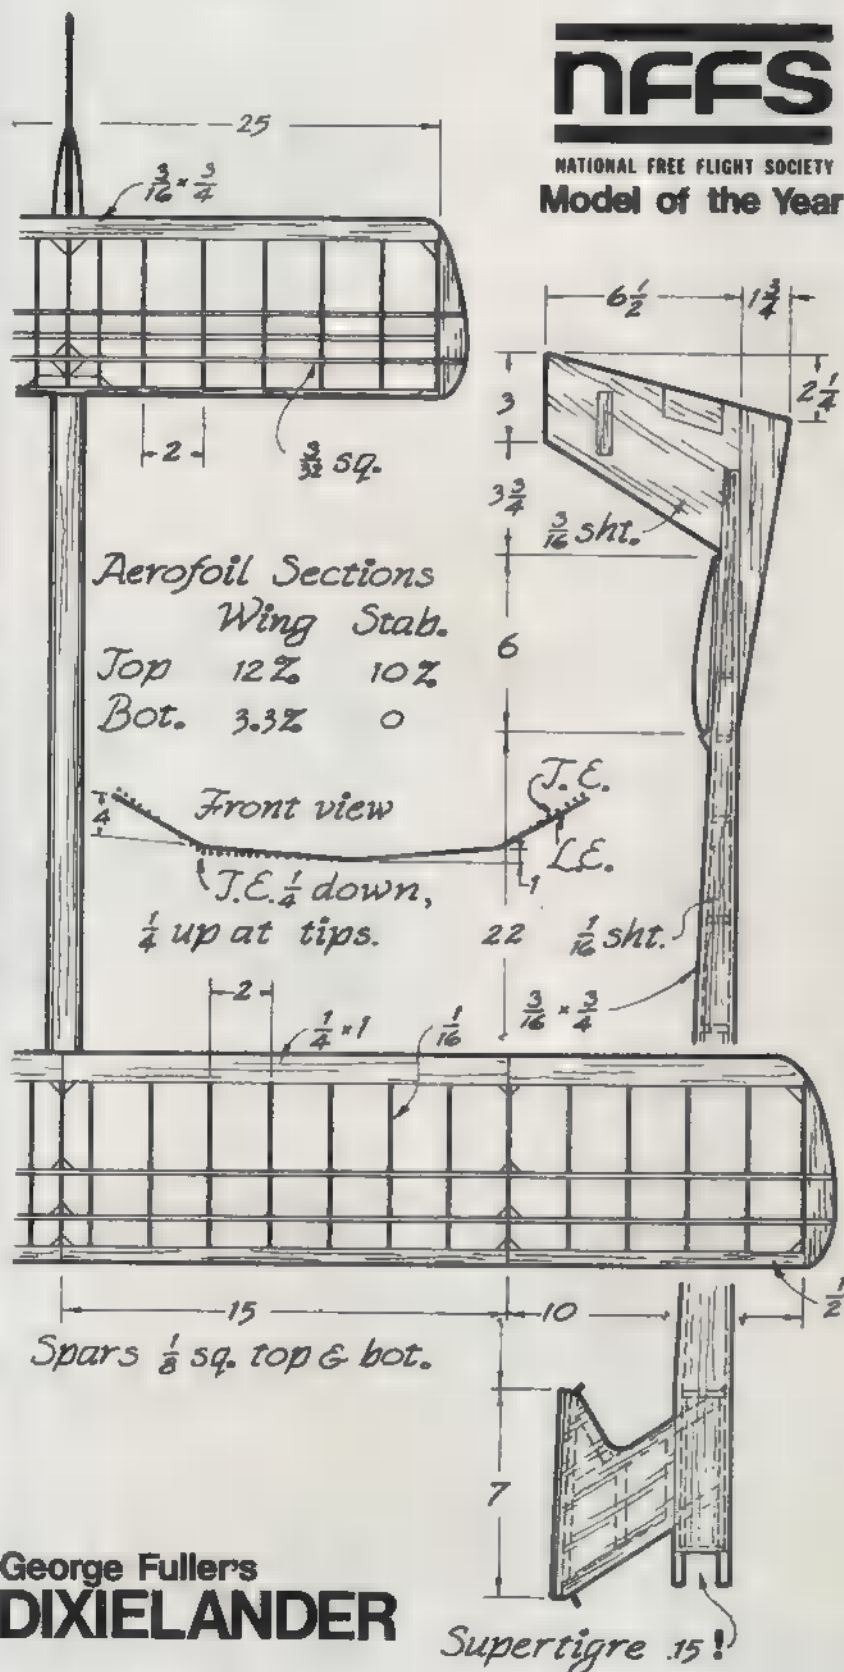 nFFS
NATIONAL FREE FLIGHT SOCIETY
Model of the Year
25
3/16 × 3/4
2
3/32 sq.
6 1/2
1 3/4
2 1/4
3
3 3/4
3/16 sht.
6
Aerofoil Sections
Wing Stab.
Top 12% 10%
Bot. 3.3% 0
Front view
4
T.E.
L.E.
1
T.E. 1/4 down,
1/4 up at tips.
22
1/16 sht.
3/16 × 3/4
2
1/4 × 1
1/16
15
10
Spars 1/8 sq. top & bot.
7
George Fuller's
DIXIELANDER
Supertigre .15!